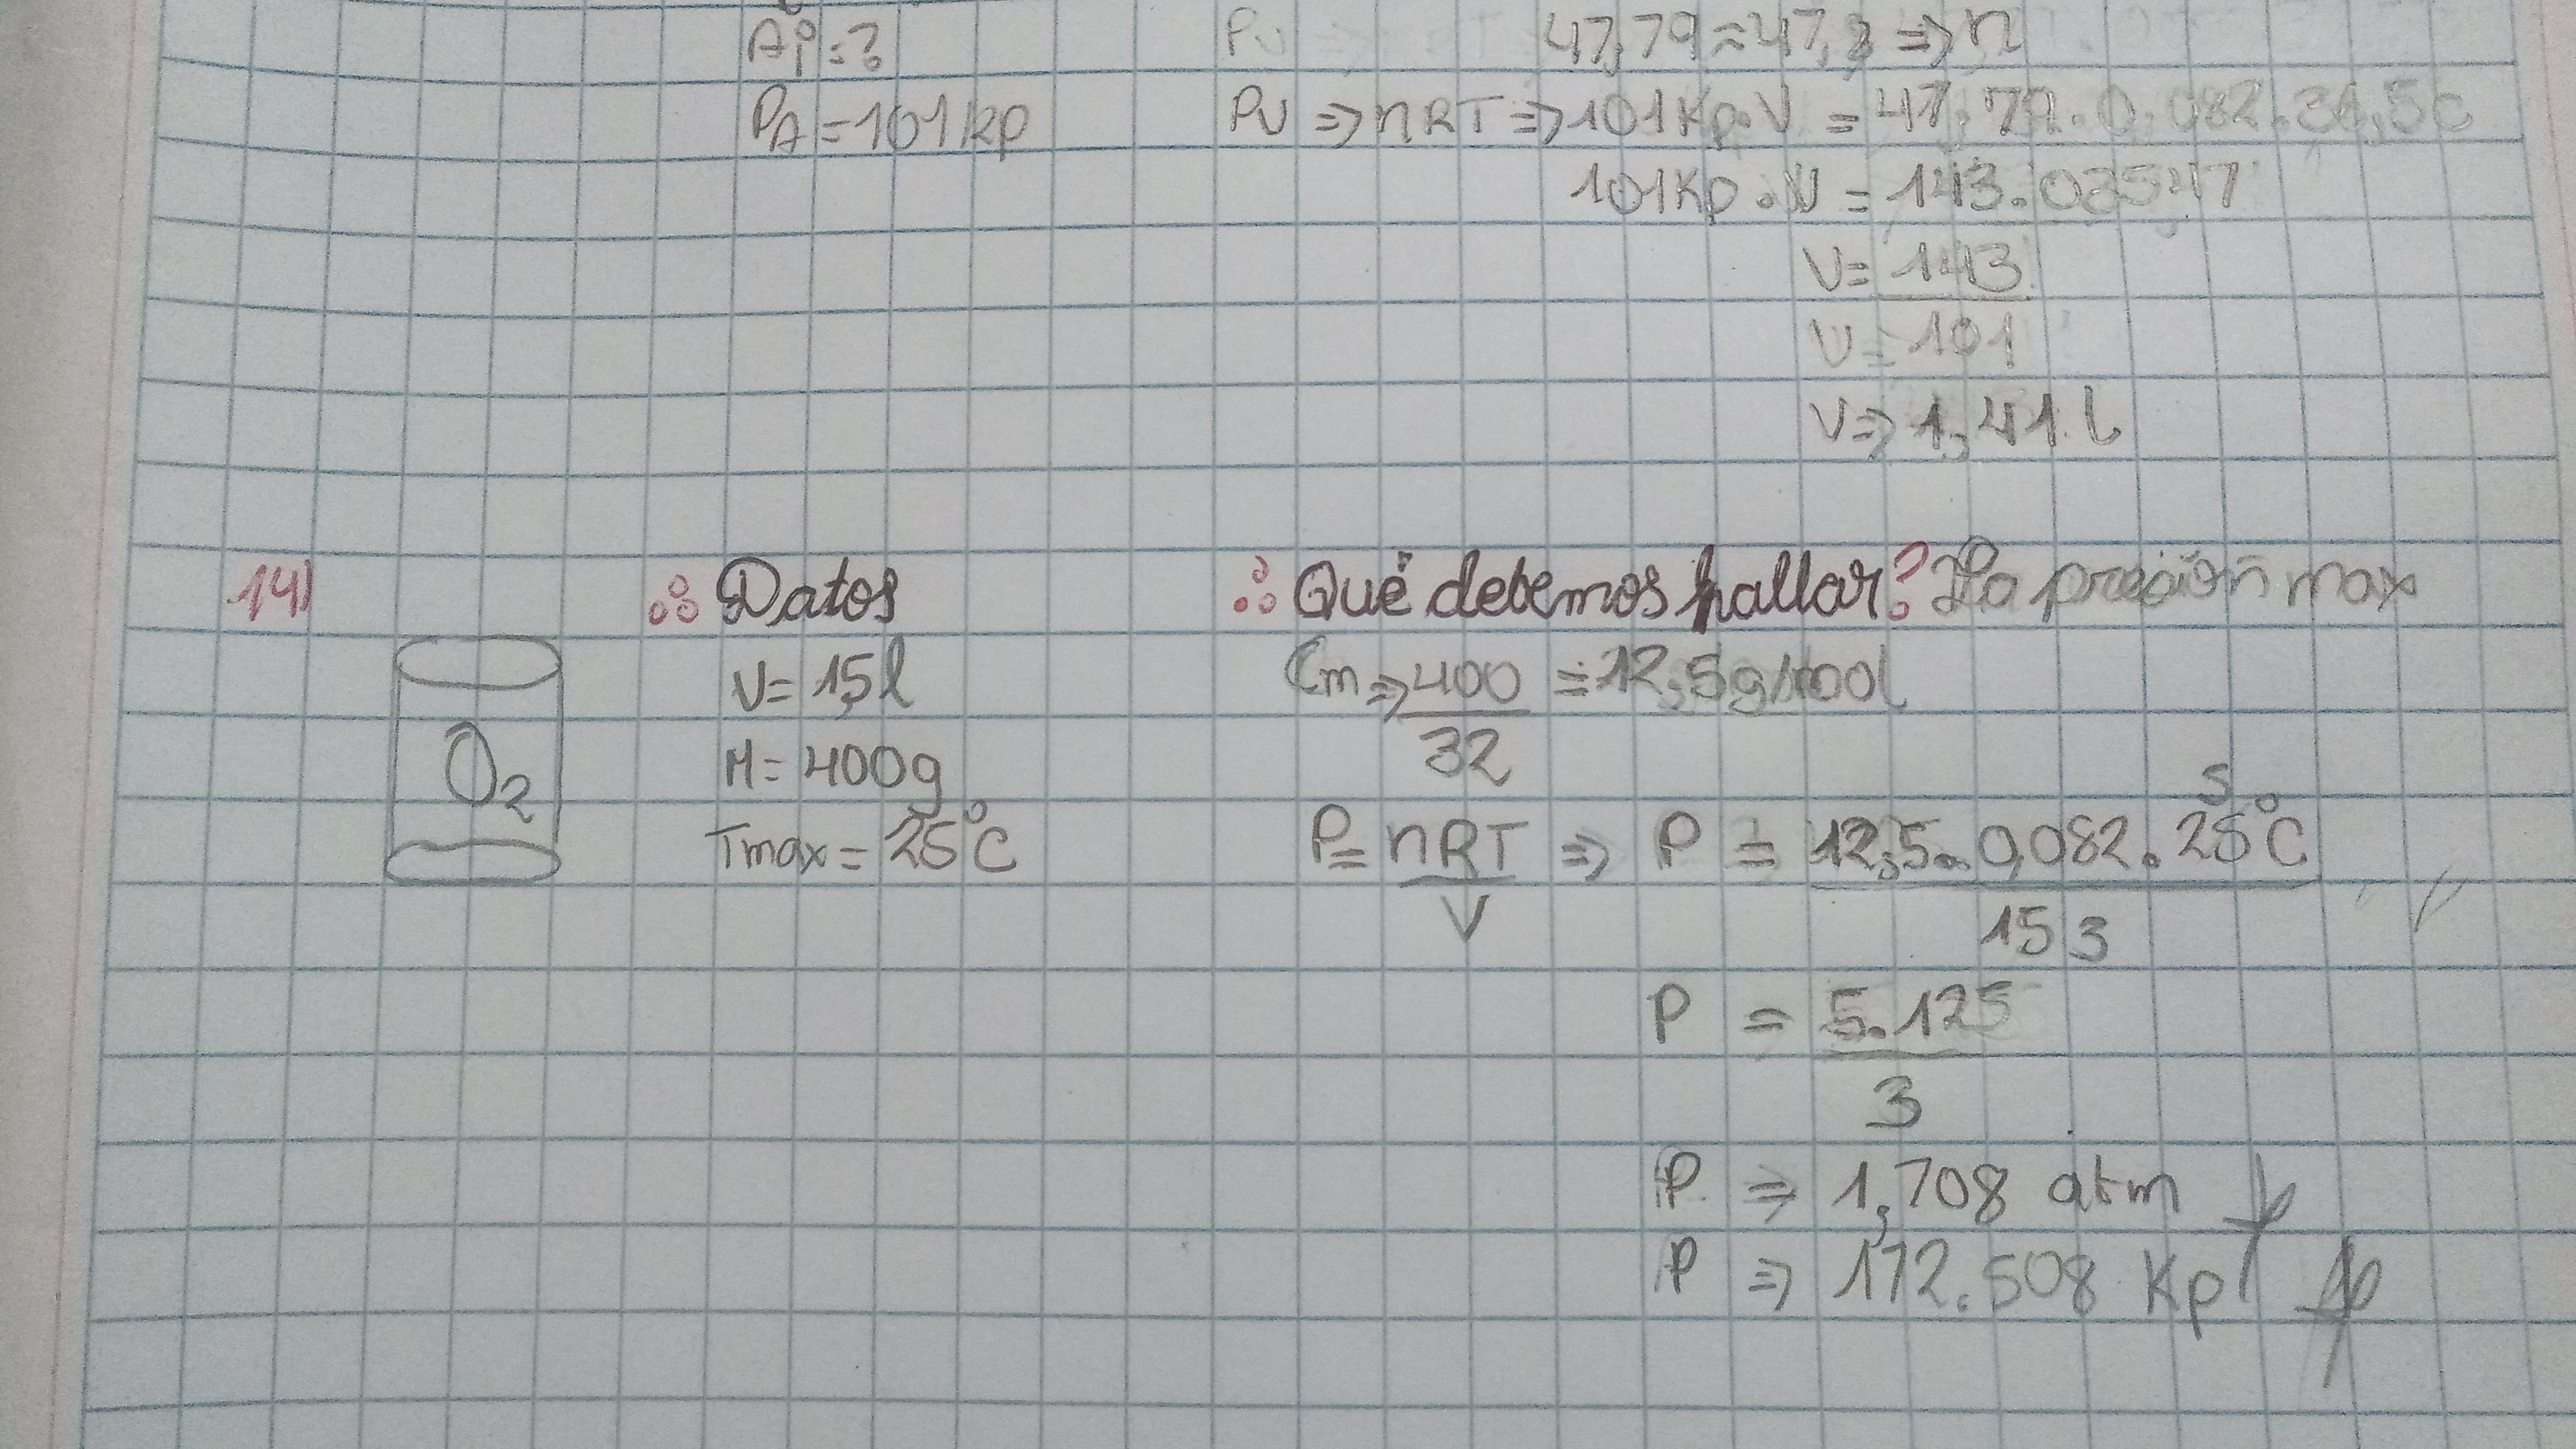 Aº i = ?
PA = 101 kp
Pv
47,79 ≈ 47, => n
PV => nRT => 101Kp.V = 47,79.0,082.36,5C
101Kp.V = 143.03547
V = 143
V = 101
V => 1,41 l
14)
O2
Datos
V = 15 l
M = 400g
Tmax = 25°C
Qué debemos hallar? La presión max
Cm => 400 = 12,5g/mol
32
P = nRT => P = 12,5.0,082.25°C
5
V
15 3
P = 5.125
3
P => 1,708 atm
P => 172.508 Kp